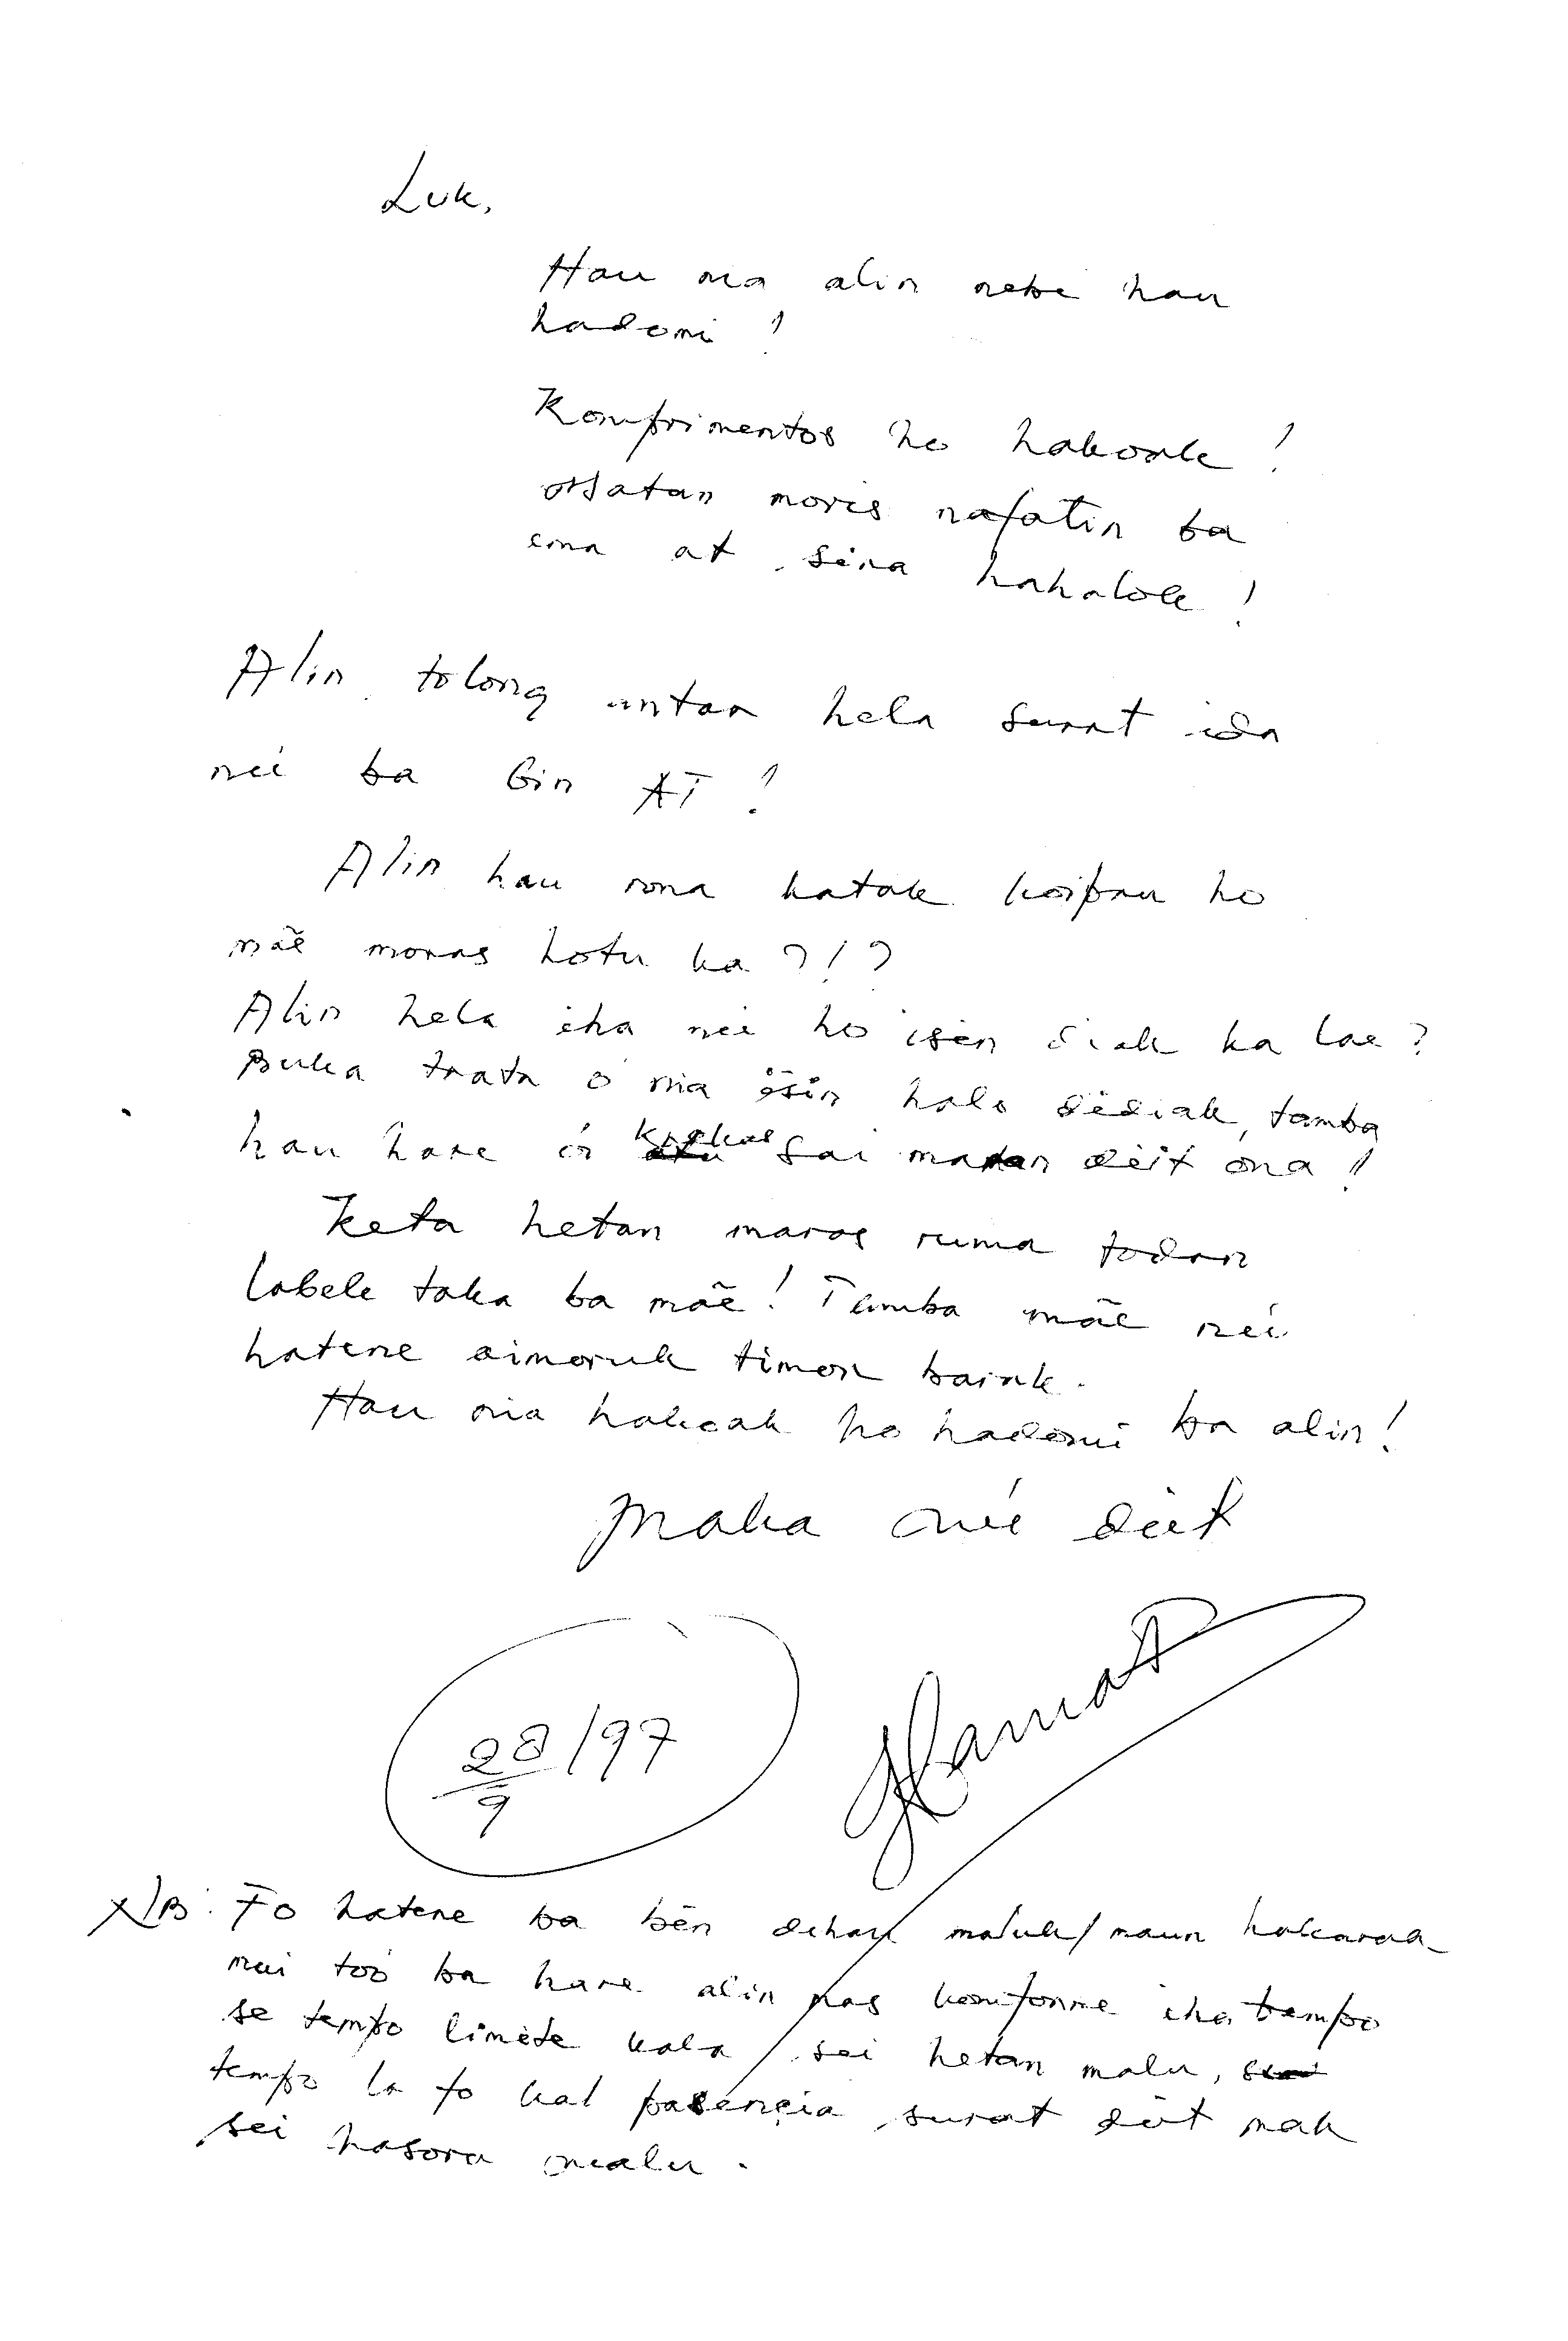 Luk,
Hau nia alin nebe hau
hadomi !
Komprimentos ho hakoak !
Matan moris nafatin ba
ema at sira hahalok !
Alin tolong antar hela surat ida
nei ba bin AT !
Alin hau rona katak koipau ho
mãe moras hotu ka ? ! ?
Alin hela iha nei ho isin diak ka lae ?
Buka trata ó nia isin halo didiak, tamba
hau hare ó krekas sai maran deit ona !
Keta hetan moras ruma todan
labele taka ba mãe ! Tamba mãe nei
hatene aimoruk timor barak.
Hau nia hakoak ho hadomi ba alin !
Maka né deit
28/9/97
NB: Fo hatene ba bén dehan maluk/maun hakaraa
nai too ba hare alin mas komforme iha tempo
se tempo limite kala sei hetan malu,
tempo la fo kal pasencia surat deit mak
sei hasoru malu.